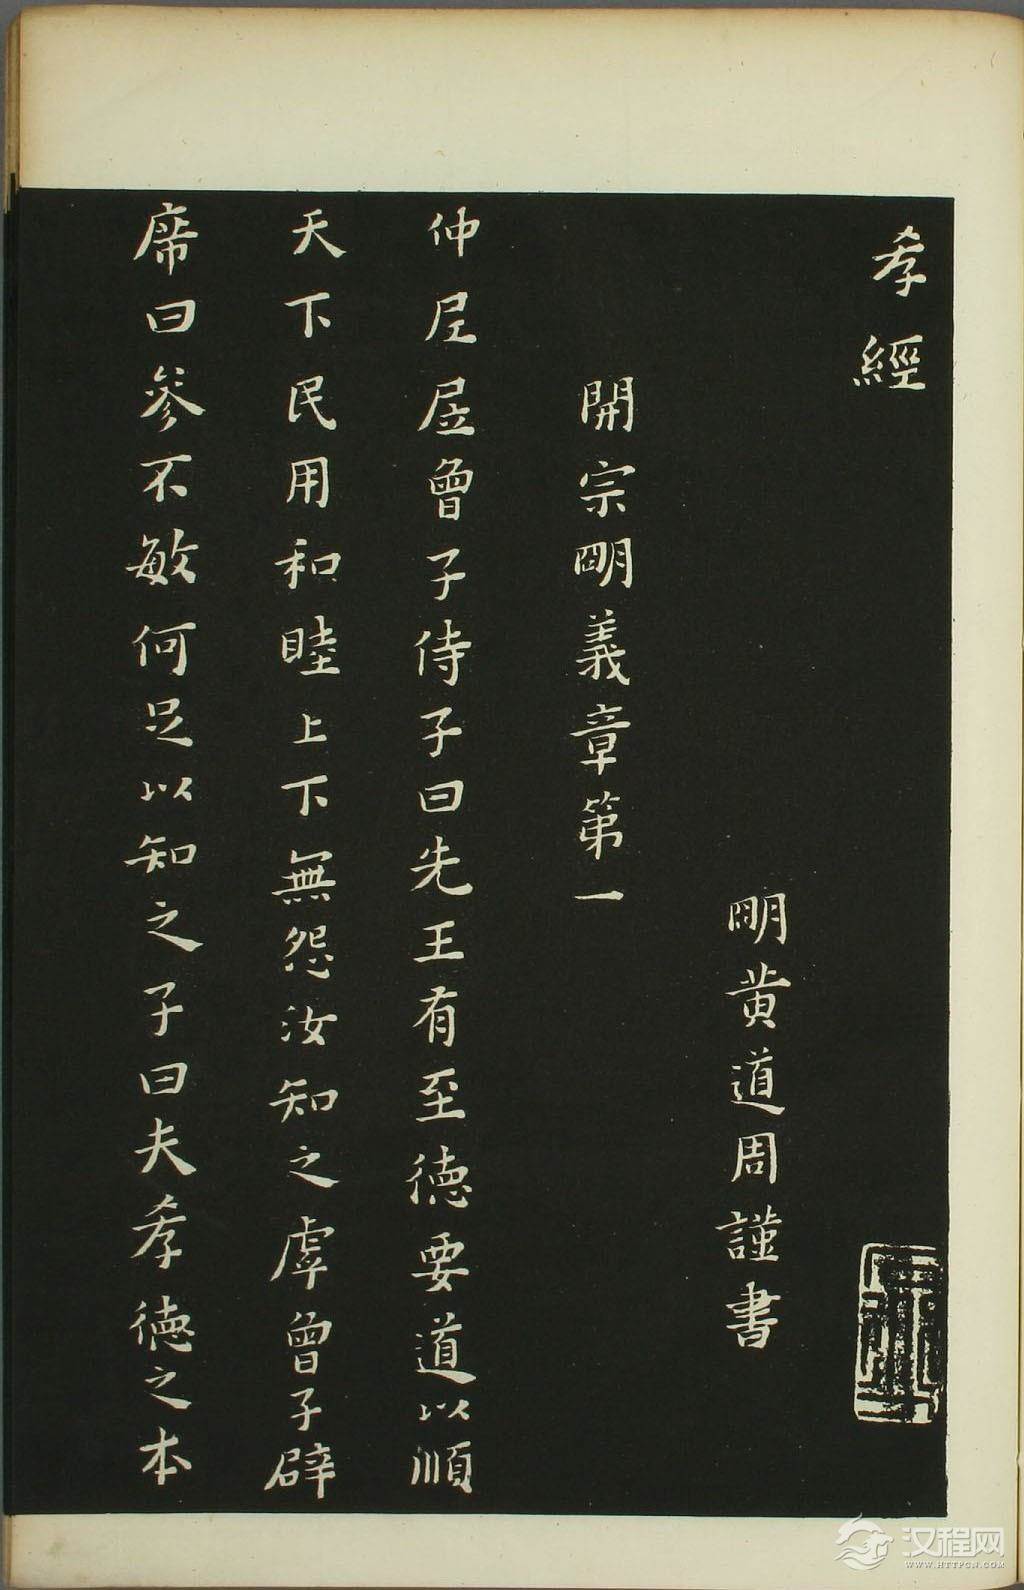 孝經
明黃道周謹書
開宗明義章第一
仲尼凥曾子侍子曰先王有至德要道以順
天下民用和睦上下無怨汝知之虖曾子辟
席曰參不敏何足以知之子曰夫孝德之本
汉程网
WWW.HTTPCN.COM